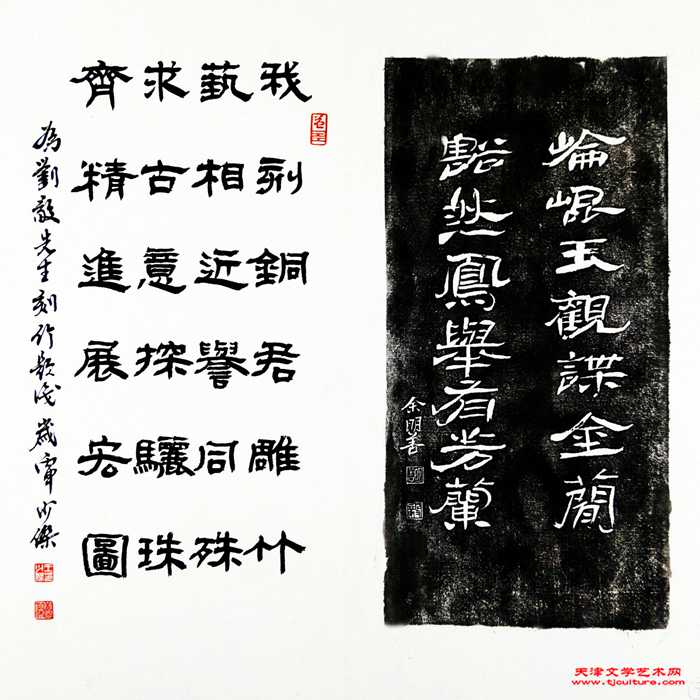 崘崐玉觀諜金簡
豁然鳳舉有芳蘭
余明善
我刻銅君雕竹
藝相近譽同殊
求古意探驪珠
齊精進展宏圖
為劉毅先生刻竹題 歲 少傑
天津文学艺术网
www.tjculture.com